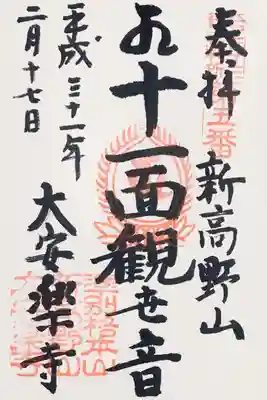 奉拝
新高野山
十一面観世音
大安楽寺
平成三十一年
二月十七日